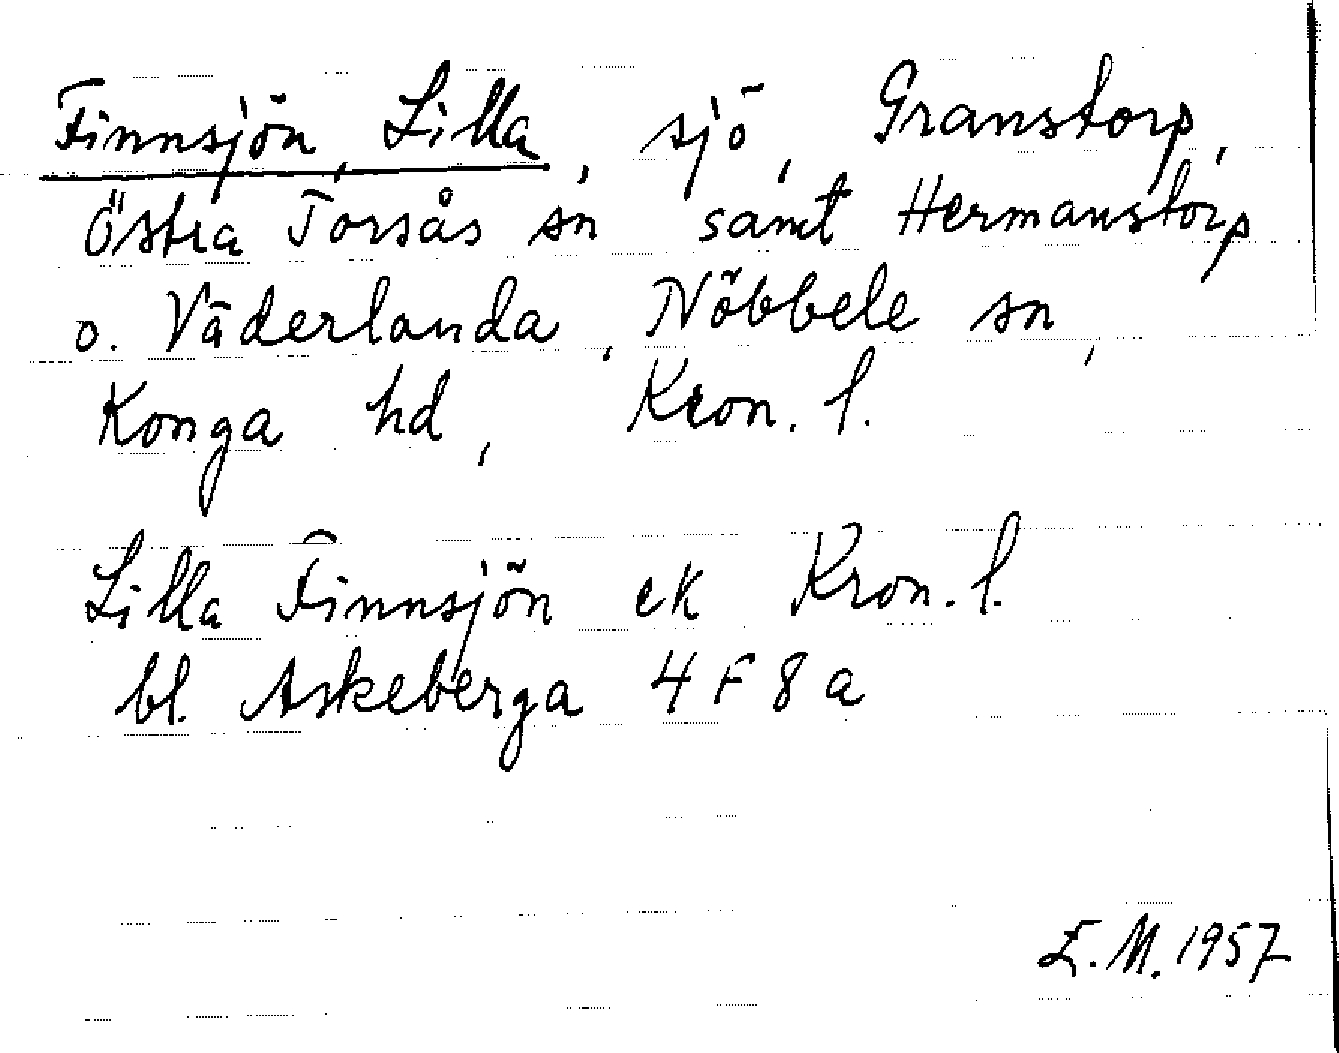 Finnsjön, Lilla, sjö, Granstorp,
Östra Torsås sn samt Hermanstorp
o. Väderlanda, Nöbbele sn,
Konga hd, Kron. l.
Lilla Finnsjön ek Kron. l.
bl. Askeberga 4 F 8 a
E. M. 1957